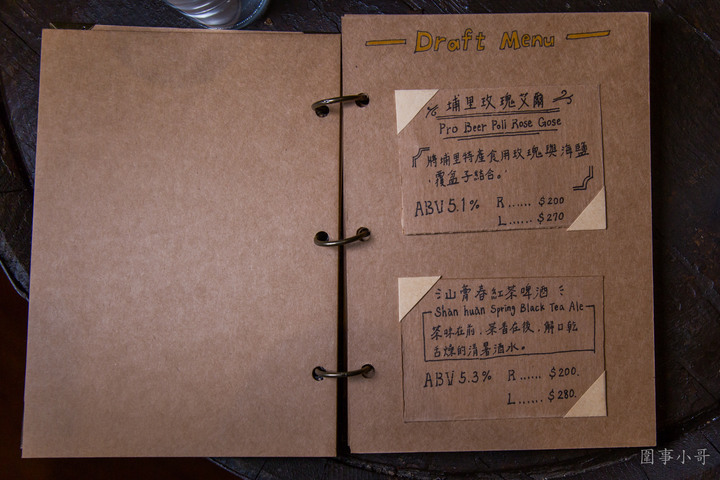 Draft Menu
埔里玫瑰艾爾
Pro Beer Poli Rose Gose
將埔里特產食用玫瑰與海鹽
、覆盆子結合。
ABV 5.1% R...... $200
L...... $270
山青春紅茶啤酒
Shan huan Spring Black Tea Ale
茶味在前，果香在後，解口乾
舌燥的消暑酒水。
ABV 5.3% R...... $200.
L...... $280.
圍事小哥